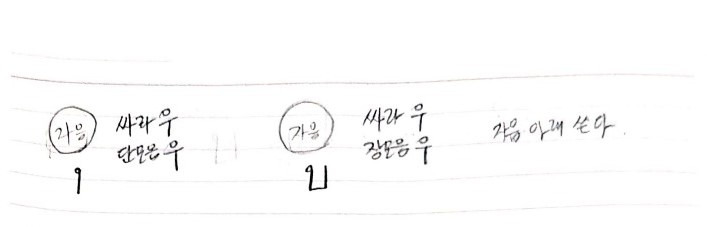 자음 싸라 우
단모음 우
ุ
자음 싸라 우
장모음 우
ู
자음 아래 쓴다.